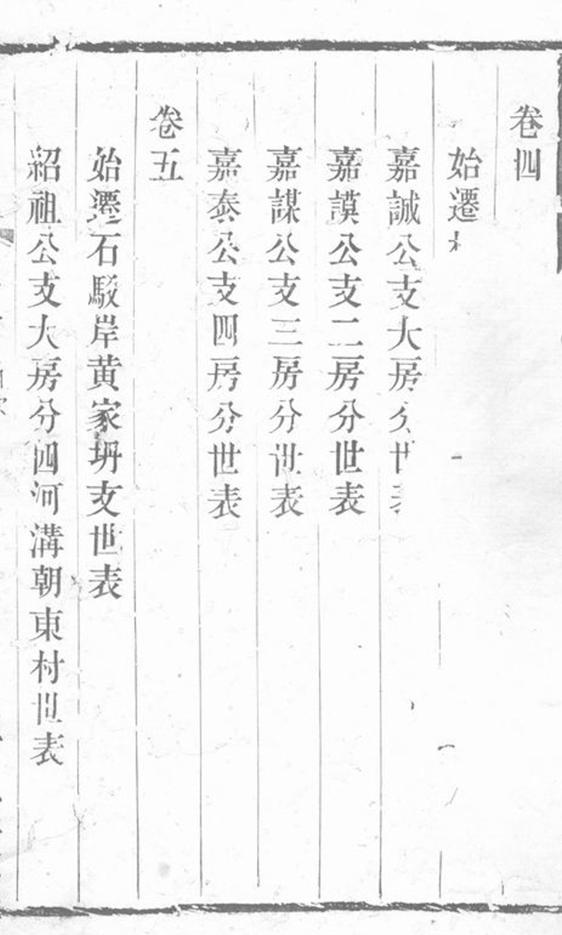 卷四
始遷
嘉誠公支大房分世表
嘉謨公支二房分世表
嘉謀公支三房分世表
嘉泰公支四房分世表
卷五
始遷石駁岸黄家坍支世表
紹祖公支大房分四河溝朝東村世表